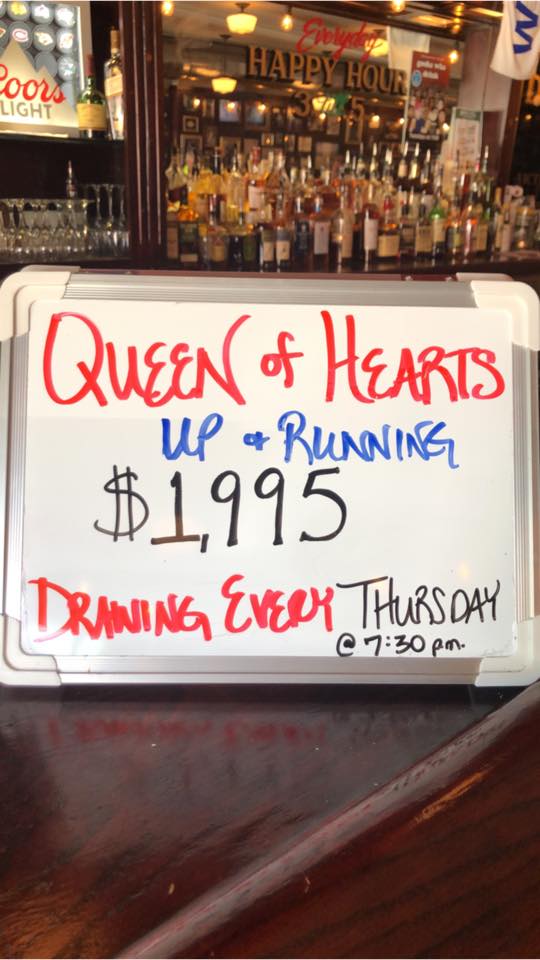 Coors
LIGHT
Everyday
HAPPY HOUR
3 to 5
W
QUEEN of HEARTS
UP & RUNNING
$1,995
DRAWING EVERY THURSDAY
@ 7:30 p.m.